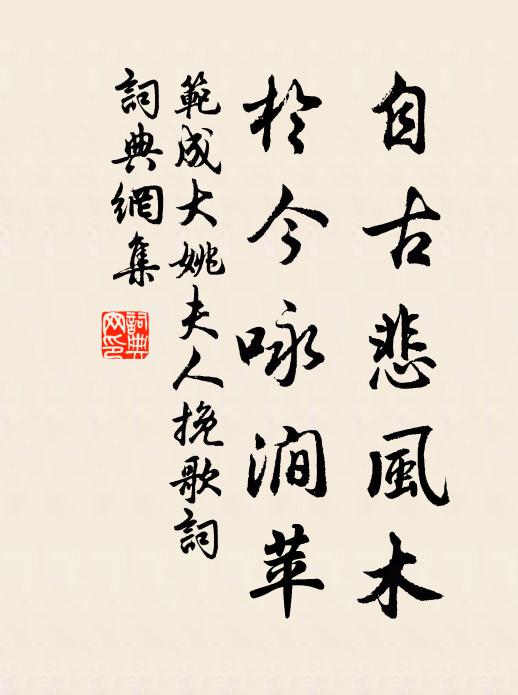 自古悲風木
於今咏澗苹
範成大姚夫人挽歌詞
詞典網集
詞典网印